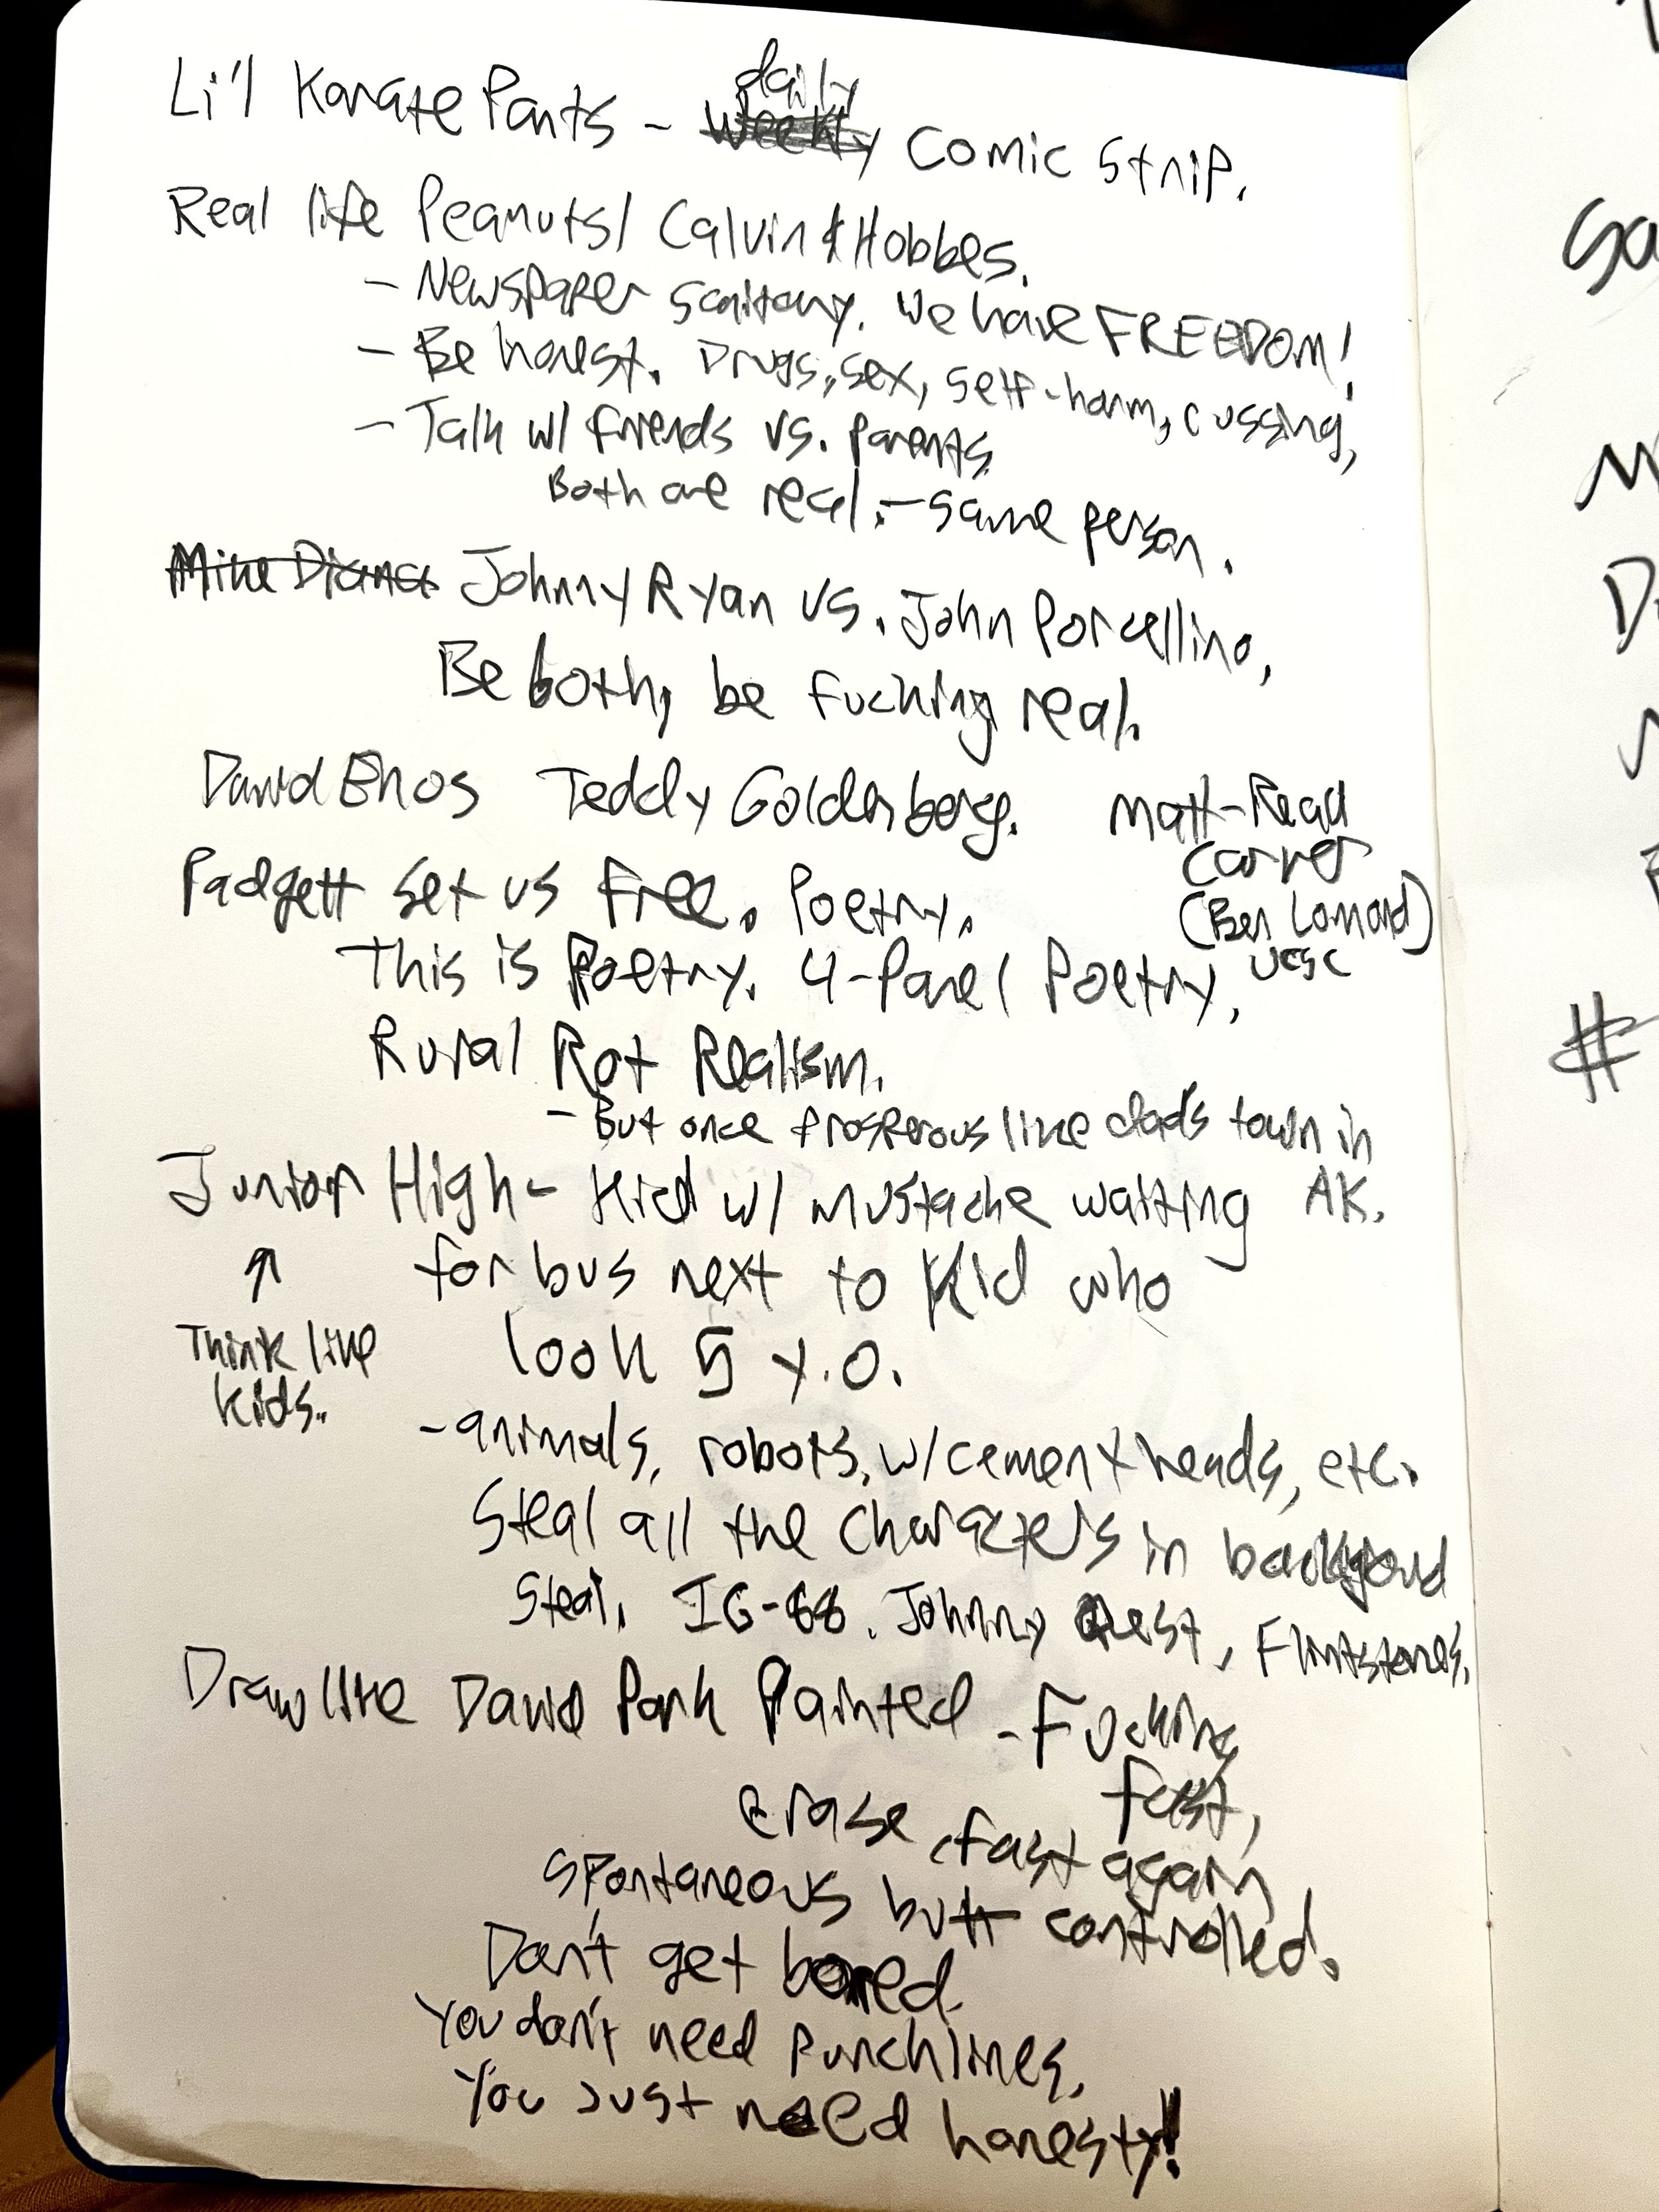 daily
Li'l Karate Pants - Weekly Comic Strip.
Real life Peanuts/Calvin & Hobbes.
- Newspaper sanitary. We have FREEDOM!
- Be honest. Drugs, sex, self-harm, cussing,
- Talk w/ friends vs. parents
Both are real. - same person.
Mike Diana Johnny Ryan vs. John Porcellino,
Be both, be fucking real.
David Enos Teddy Goldenberg.
Matt-Read
Carver
(Ben Lomond)
UCSC
Padgett set us free. Poetry.
This is Poetry. 4-Panel Poetry,
Rural Rot Realism.
- But once prosperous like dads town in
AK.
Junior High - Kid w/ mustache waiting
for bus next to kid who
look 5 y.o.
↑
Think like
kids.
- animals, robots, w/cement heads, etc.
Steal all the characters in background
Steal. IG-88. Johnny Quest, Flintstones.
Draw like David Park Painted - Fucking
fast,
erase, fast again
spontaneous but controlled.
Don't get bored.
You don't need punchlines,
You Just need honesty!
Sa
M
#